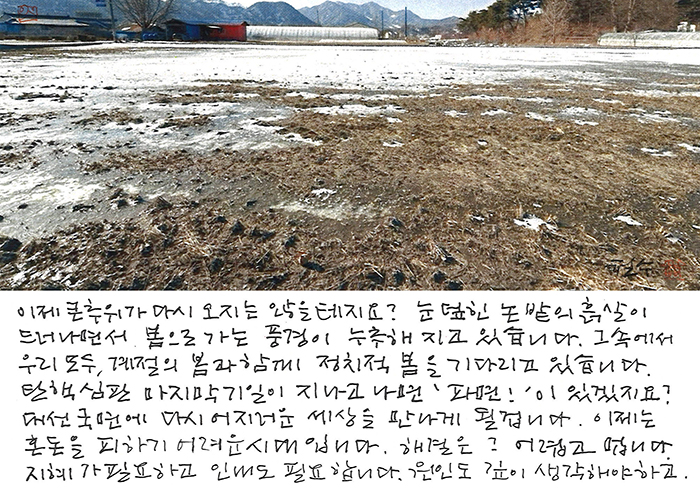 이제 큰추위가 다시 오지는 않을테지요? 눈 덮힌 논밭의 흙살이
드러나면서 봄으로 가는 풍경이 누추해 지고 있습니다. 그속에서
우리 모두, 계절의 봄과 함께 정치적 봄을 기다리고 있습니다.
탄핵심판 마지막기일이 지나고 나면 '파면!'이 있겠지요?
대선국면에 다시 어지러운 세상을 만나게 될겁니다. 이제는
혼돈을 피하기 어려운 시대입니다. 해결은? 어렵고 멉니다
지혜가 필요하고 인내도 필요합니다. 원인도 깊이 생각해야하고.